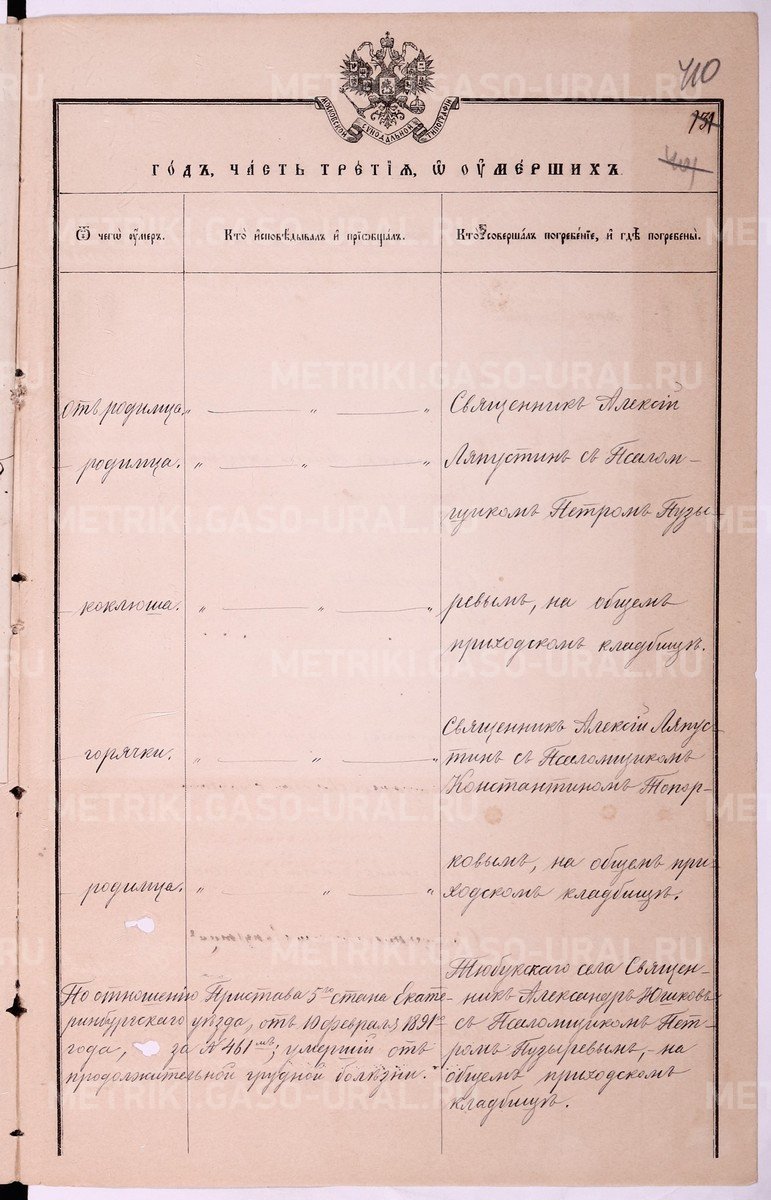 410
731
МОСКОВСКОЙ СѴНОДАЛЬНОЙ ТИПОГРАФІИ
ГОДЪ, ЧАСТЬ ТРЕТІЯ, Ѿ ОУМЕРШИХЪ
Ѿ чегѡ оумеръ.
Кто исповѣдывалъ и пріобщалъ.
Кто совершалъ погребеніе, и гдѣ погребены.
отъ родимца. „ — „ — „ Священникъ Алексій
родимца. „ — „ — „ Ляпустинъ съ Псалом-
щикомъ Петромъ Пузы
коклюша. „ — „ — „ ревымъ, на общемъ
приходскомъ кладбищѣ.
Священникъ Алексій Ляпус-
горячки. „ — „ — „ тинъ съ Псаломщикомъ
Константиномъ Топор-
ковымъ, на общемъ при-
родимца. „ — „ — „ ходскомъ кладбищѣ.
По отношенію Пристава 5го стана Екате-
ринбургскаго уѣзда, отъ 10 февраля 1891го
года, за № 461мъ; умершій отъ
продолжительной грудной болѣзни.
Тюбукскаго села Священ-
никъ Александръ Юшковъ
съ Псаломщикомъ Пет-
ромъ Пузыревымъ, - на
общемъ приходскомъ
кладбищѣ.
METRIKI.GASO-URAL.RU